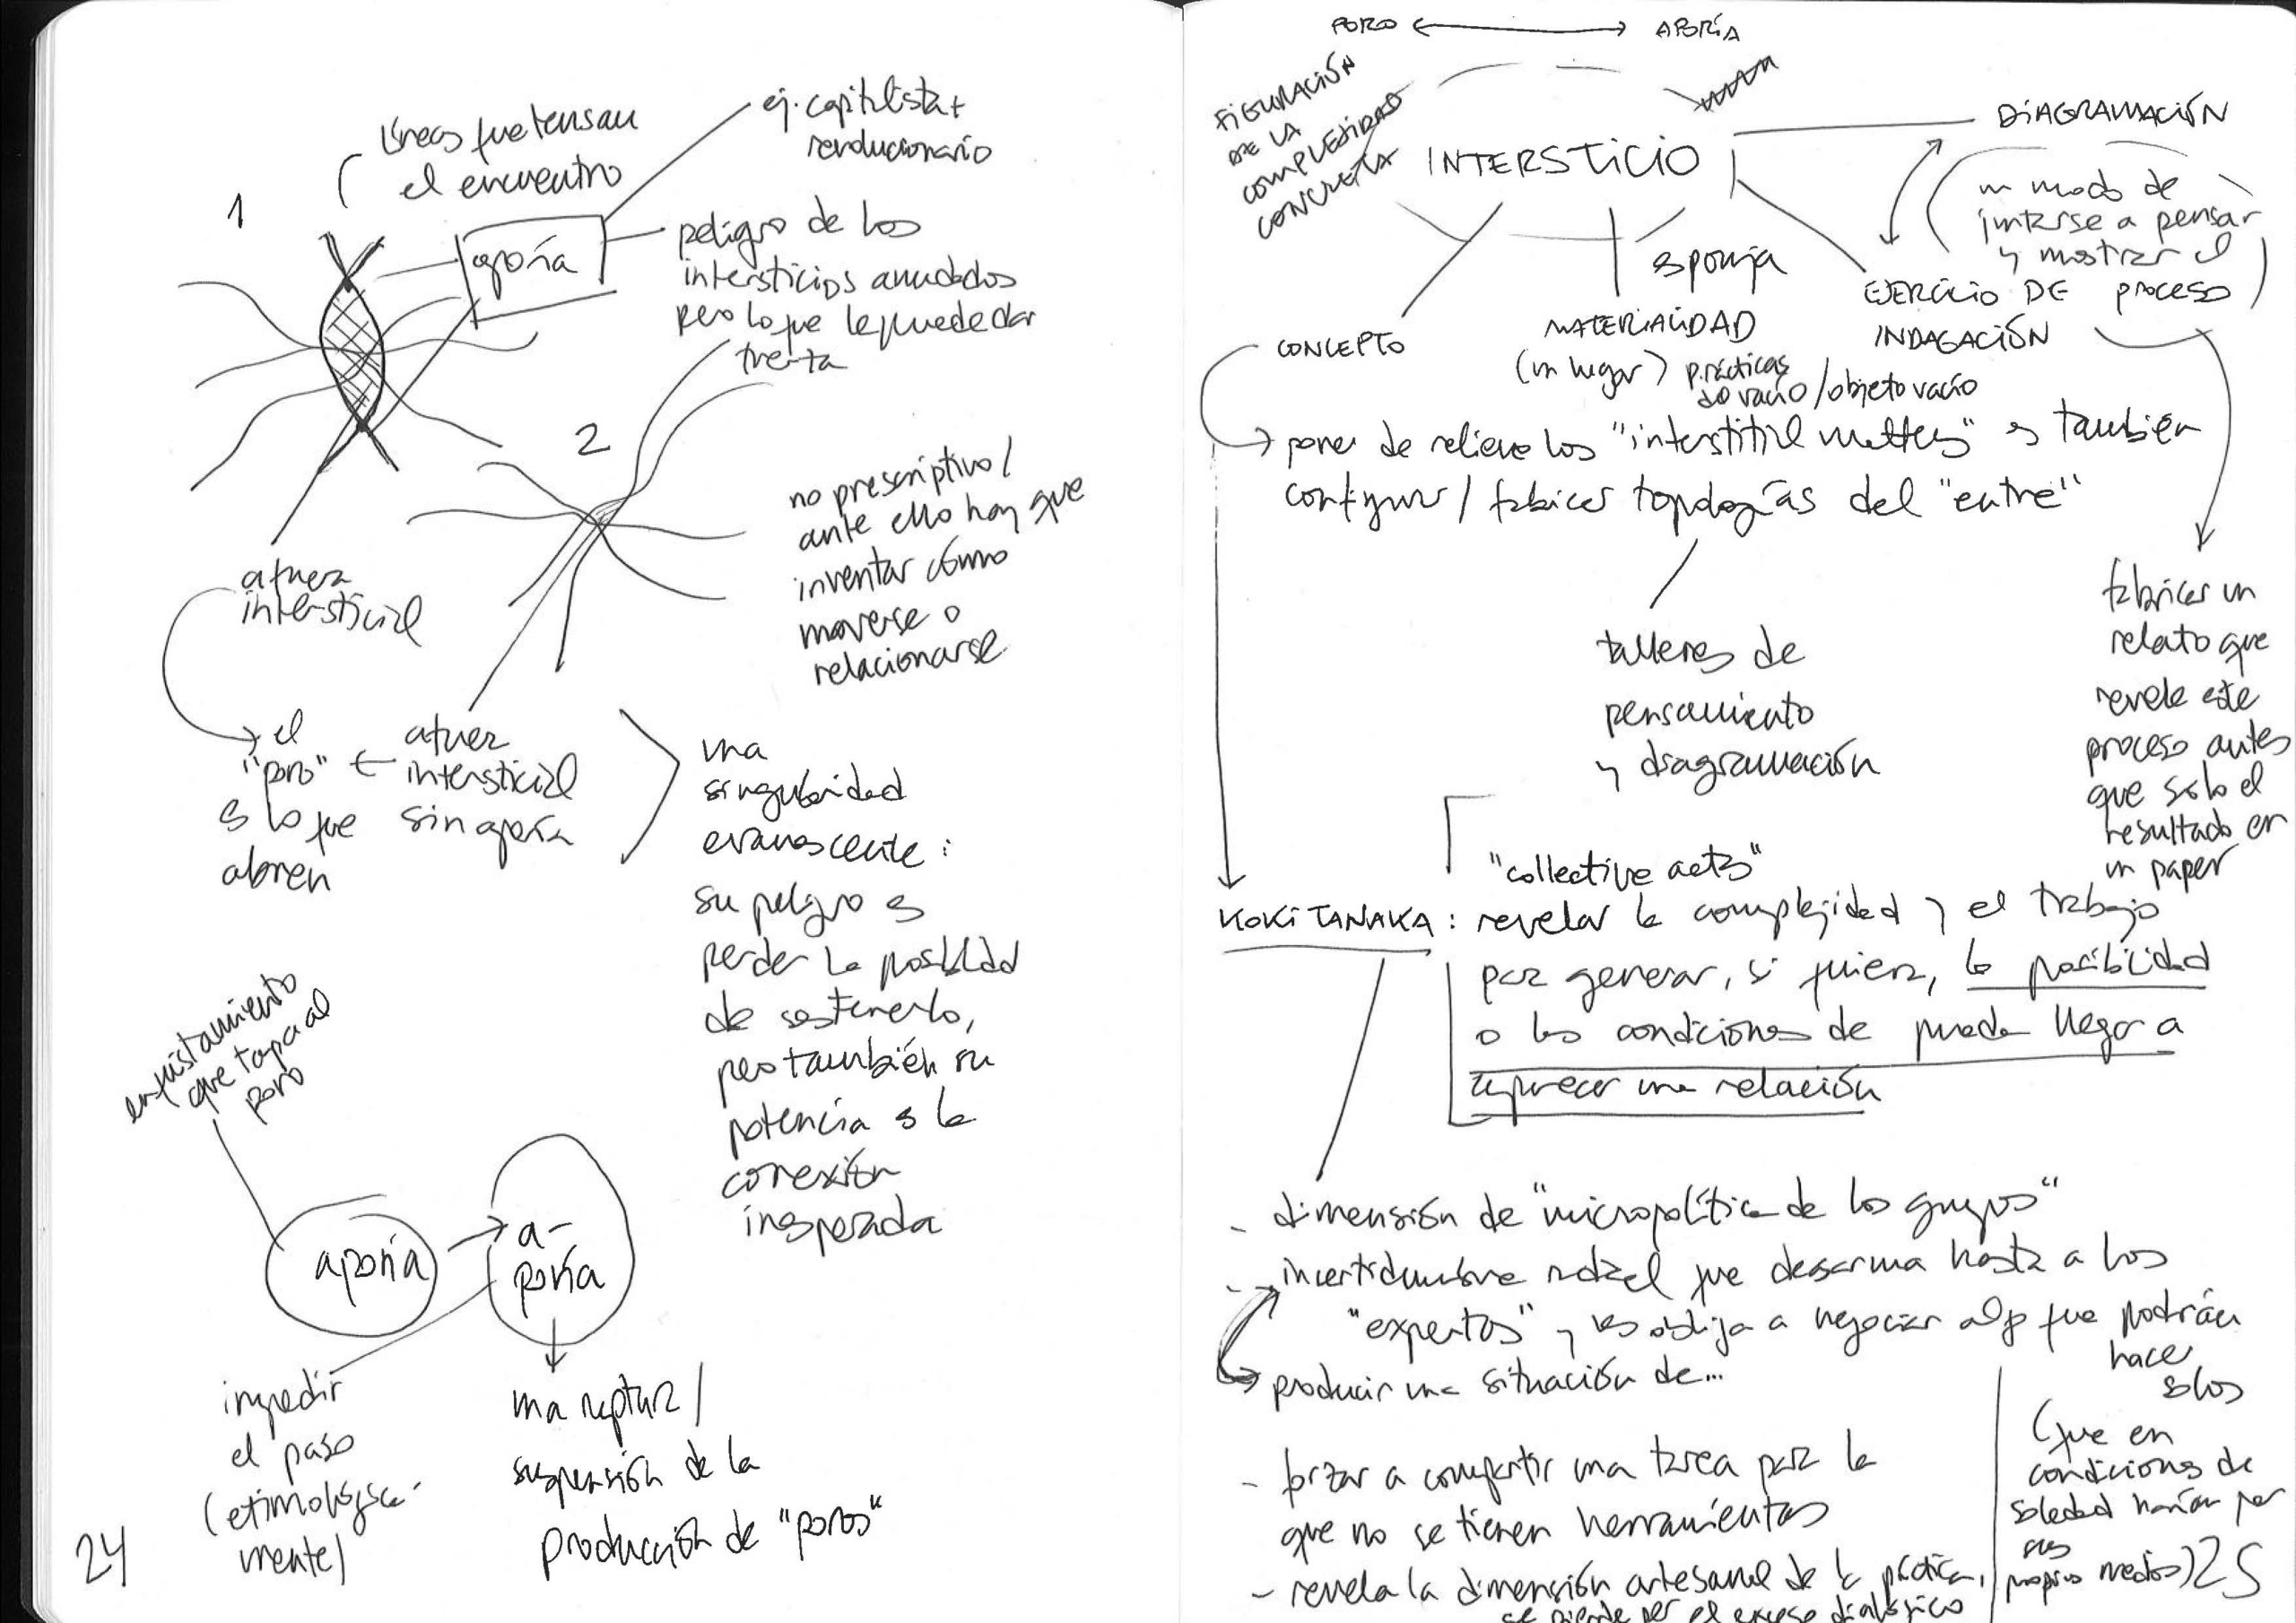 1
líneas que tensan
el encuentro
ej. capitalista +
revolucionario
aporía
peligro de los
intersticios anudados
pero lo que le puede dar
fuerza
2
no prescriptivo /
ante ello hay que
inventar cómo
moverse o
relacionarse
afuera
intersticial
el
"poro" ← afuera
intersticial
es lo que sin aporía
abren
una
singularidad
evanescente:
su peligro es
perder la posibilidad
de sostenerlo,
pero también su
potencia es la
conexión
inesperada
enquistamiento
que tapa al
poro
aporía → a-
poría
impedir
el paso
(etimológica-
mente)
una ruptura /
suspensión de la
producción de "poros"
24
PORO ←→ APORÍA
FIGURACIÓN
DE LA
COMPLEJIDAD
CONCRETA
INTERSTICIO
DIAGRAMACIÓN
un modo de
juntarse a pensar
y mostrar el
proceso
EJERCICIO DE
INDAGACIÓN
esponja
CONCEPTO
MATERIALIDAD
(un lugar) prácticas
do vacío / objeto vacío
poner de relieve los "interstitial matters" es también
configurar / fabricar topologías del "entre"
talleres de
pensamiento
y diagramación
fabricar un
relato que
revele este
proceso antes
que sólo el
resultado en
un paper
"collective acts"
KOKI TANAKA: revelar la complejidad y el trabajo
para generar, si quiera, la posibilidad
o las condiciones de pueda llegar a
aparecer una relación
- dimensión de "micropolítica de los grupos"
- incertidumbre radical que desarma hasta a los
"expertos" y les obliga a negociar algo que podrían
hacer
solos
producir una situación de...
(que en
condiciones de
soledad harían por
sus
propios medios)
- forzar a compartir una tarea para la
que no se tienen herramientas
- revela la dimensión artesanal de la práctica,
se pierde por el exceso dialógico
25